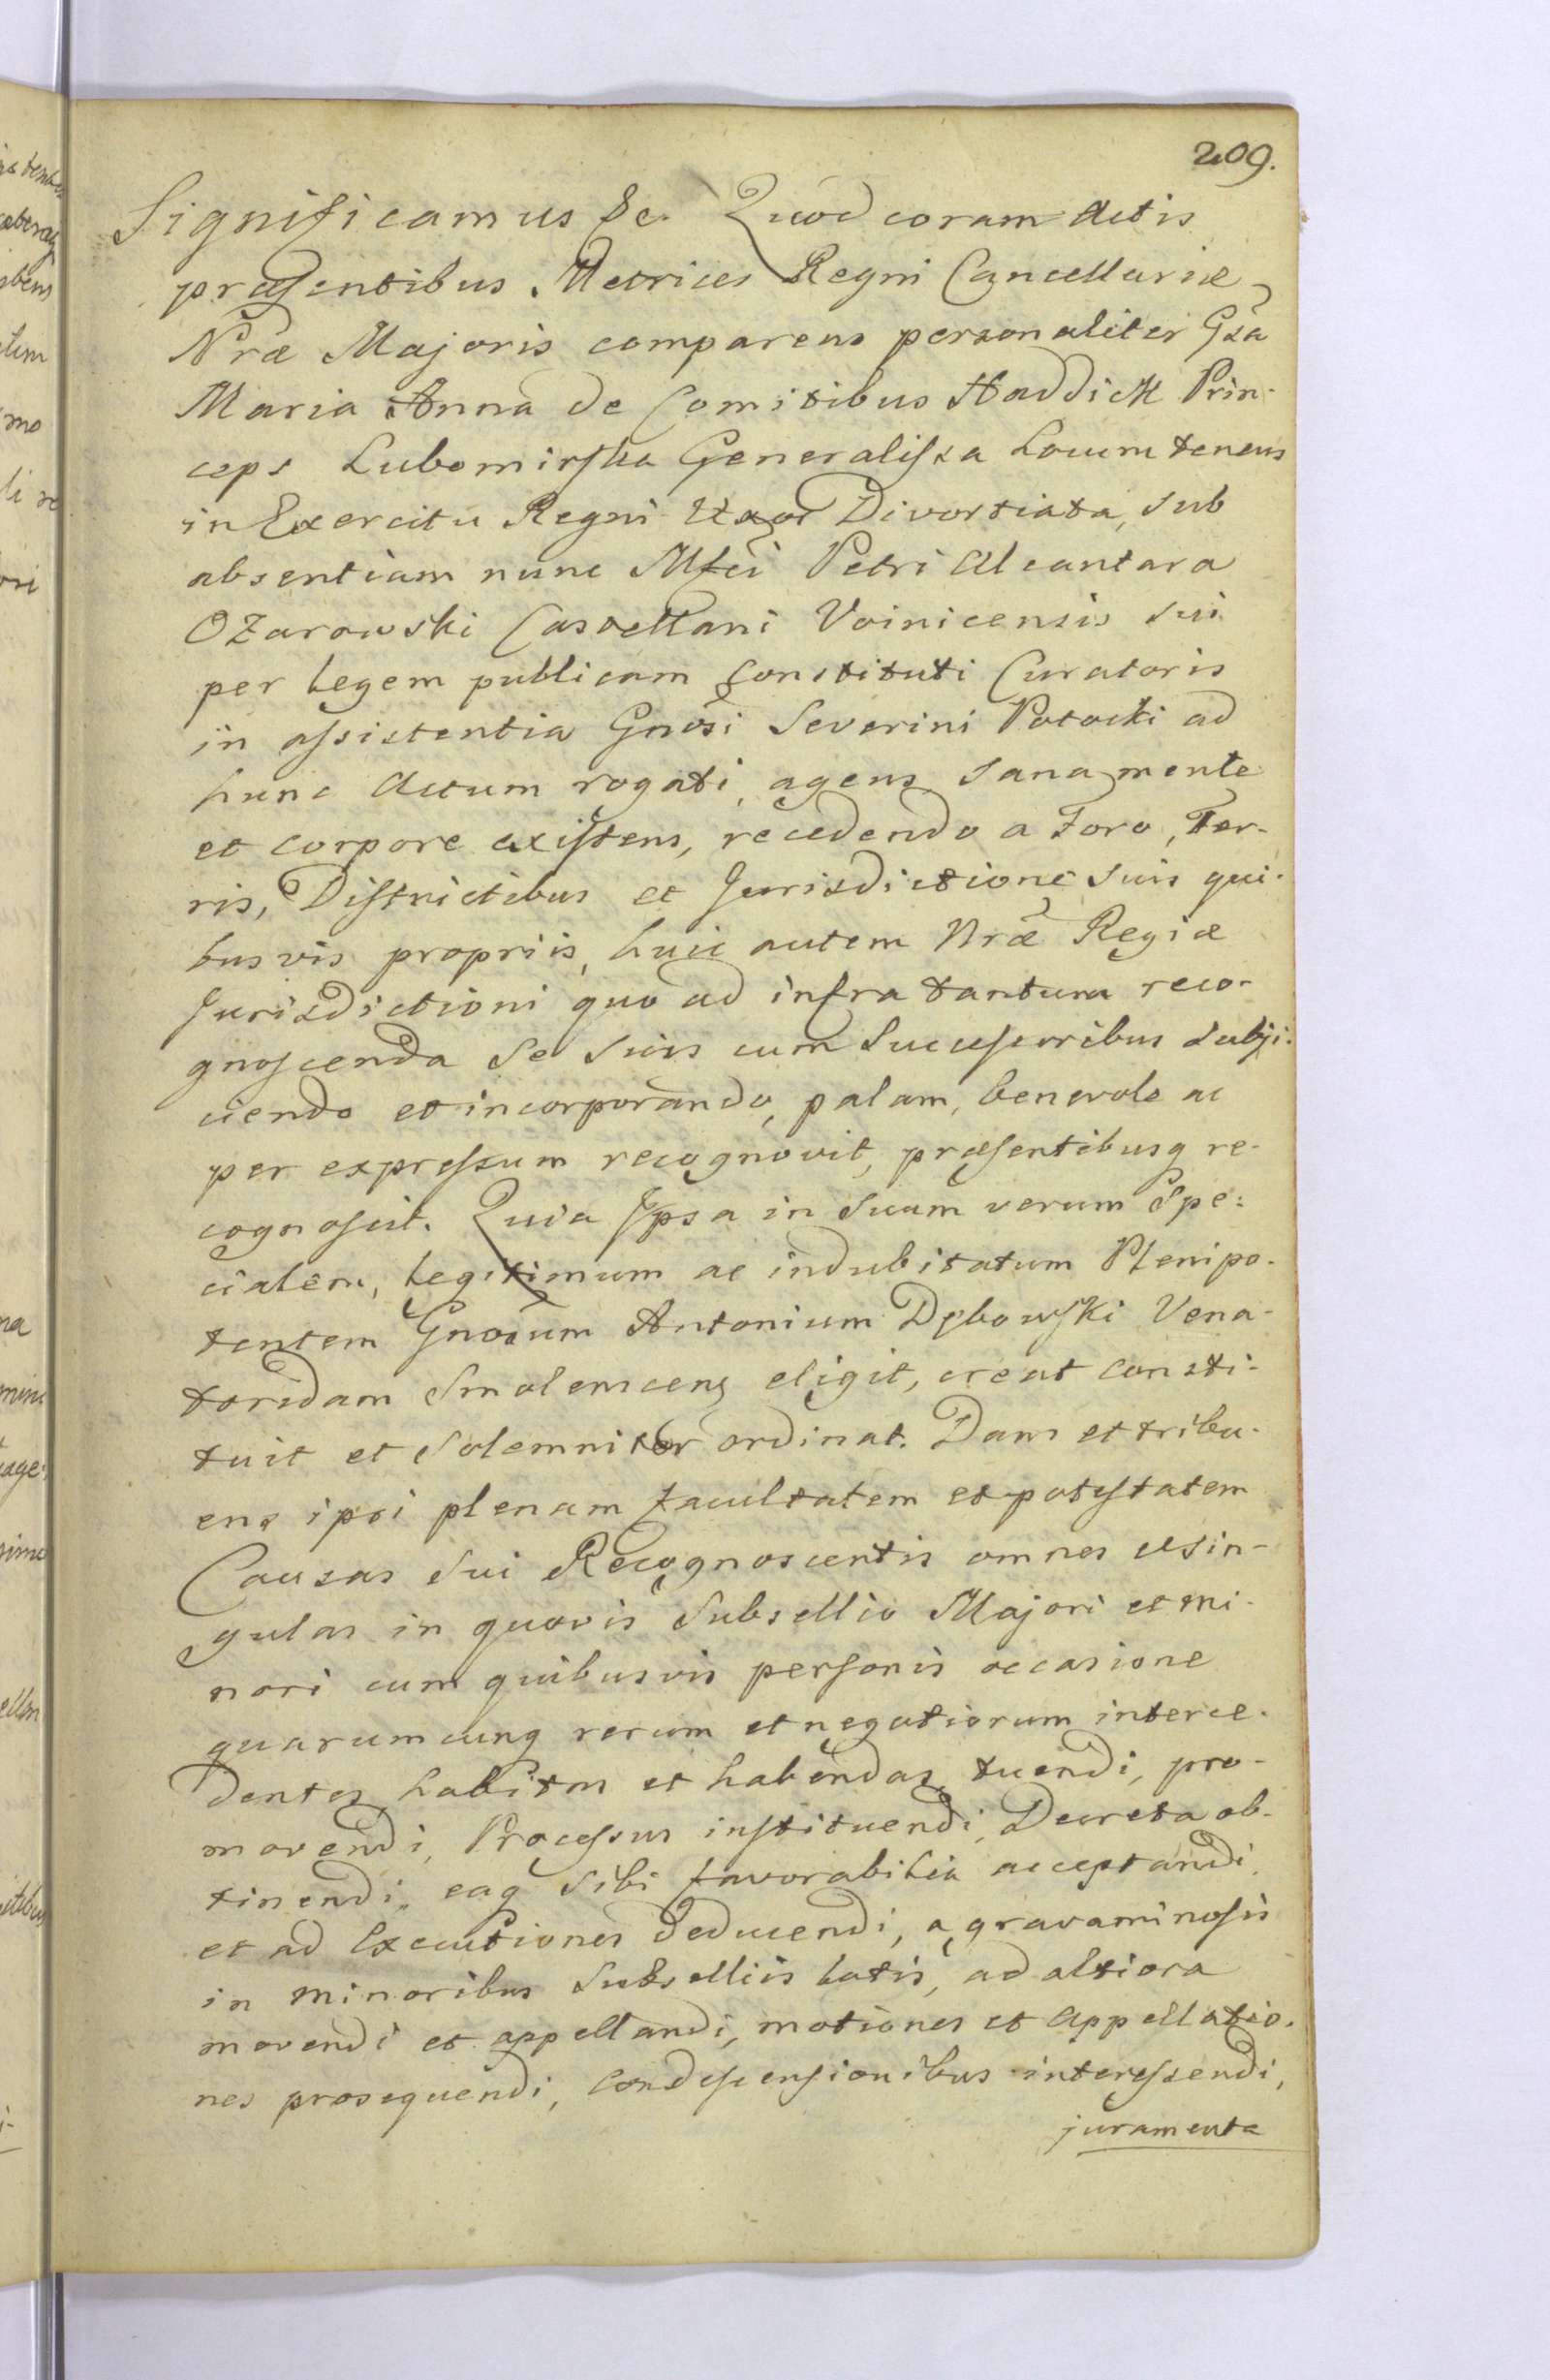 209.
Significamus &c. Quod coram Actis
præsentibus Metrices Regni Cancellariæ
Nræ Majoris comparens personaliter Gsa
Maria Anna de Comitibus Haddick Prin-
ceps Lubomirska Generalissa Locum tenens
in Exercitu Regni Uxor Divortiata, sub
absentiam nunc Mfci Petri Alcantara
Ożarowski Castellani Voinicensis sui
per Legem publicam Constituti Curatoris
in assistentia Gnosi Severini Potocki ad
hunc Actum rogati, agens, sana mente
et corpore existens, recedendo a Foro, Ter-
ris, Districtibus et Jurisdictione suis qui-
busvis propriis, huic autem Nræ Regiæ
Jurisdictioni quo ad infra tantum reco-
gnoscenda se suis cum Successoribus subji-
ciendo et incorporando, palam, benevole ac
per expressum recognovit, præsentibusq re-
cognoscit. Quia Ipsa in suum verum Spe-
cialem, Legitimum ac indubitatum Plenipo-
tentem Gnosum Antonium Dębowski Vena-
toridam Smolenscens eligit, creat consti-
tuit et solemniter ordinat. Dans et tribu-
ens ipsi plenam facultatem et potestatem
Causas sui Recognoscentis omnes et sin-
gulas in quovis Subsellio Majori et mi-
nori cum quibusvis personis occasione
quarumcunq rerum et negotiorum interce-
dentes, habitas et habendas, tuendi, pro-
movendi, Processus instituendi, Decreta ob-
tinendi, eaq sibi favorabilia acceptandi,
et ad Executiones deducendi, a gravaminosis
in minoribus Subselliis latis, ad altiora
movendi et appellandi, motiones et appellatio-
nes prosequendi, Condescensionibus interessendi,
juramenta